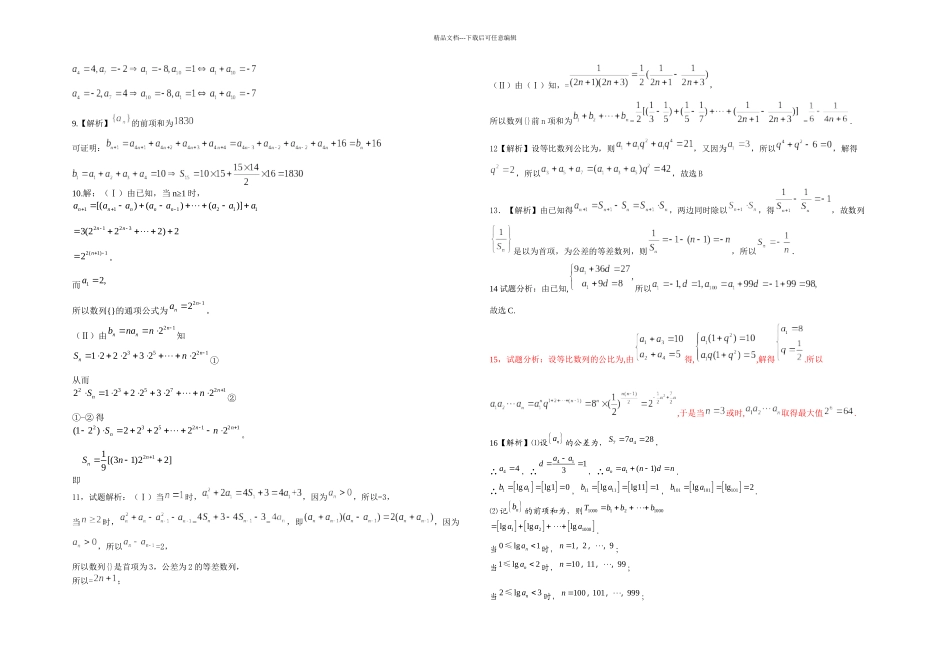 精品文档---下载后可任意编辑
a₄ 4,a₇ 2 ⇒ a₁ 8,a₁₀ 1 ⇔ a₁ a₁₀ 7
a₄ 2,a₇ 4 ⇒ a₁₀ 8,a₁ 1 ⇔ a₁ a₁₀ 7
9.【解析】{aₙ}的前项和为1830
可证明：bₙ₊₁ a₄ₙ₊₁ a₄ₙ₊₂ a₄ₙ₊₃ a₄ₙ₊₄ a₄ₙ₋₃ a₄ₙ₋₂ a₄ₙ₋₂ a₄ₙ 16 bₙ 16
b₁ a₁ a₂ a₃ a₄ 10 ⇒ S₁₅ 10 15 (15 14)/2 16 1830
10.解：（Ⅰ）由已知，当 n≥1 时，
aₙ₊₁ [(aₙ₊₁ aₙ) (aₙ aₙ₋₁) ⋯ (a₂ a₁)] a₁
3(2²ⁿ⁻¹ 2²ⁿ⁻³ ⋯ 2) 2
2²⁽ⁿ⁺¹⁾⁻¹.
而a₁ 2,
所以数列{}的通项公式为aₙ 2²ⁿ⁻¹.
（Ⅱ）由bₙ naₙ n·2²ⁿ⁻¹知
Sₙ 1·2 2·2³ 3·2⁵ ⋯ n·2²ⁿ⁻¹①
从而
2²·Sₙ 1·2³ 2·2⁵ 3·2⁷ ⋯ n·2²ⁿ⁺¹②
①-② 得
(1 2²)·Sₙ 2 2³ 2⁵ ⋯ 2²ⁿ⁻¹ n·2²ⁿ⁺¹.
即 Sₙ 1/9[(3n 1)2²ⁿ⁺¹ 2]
11，试题解析：（Ⅰ）当n 1时，a₁² 2a₁ 4S₁ 3 4a₁+3，因为aₙ 0，所以=3，
当n ≥ 2时，aₙ² aₙ aₙ₋₁² aₙ₋₁=4Sₙ 3 4Sₙ₋₁ 3=4aₙ，即(aₙ aₙ₋₁)(aₙ aₙ₋₁) 2(aₙ aₙ₋₁)，因为
aₙ 0，所以aₙ aₙ₋₁=2，
所以数列{}是首项为 3，公差为 2 的等差数列，
所以=2n 1；
（Ⅱ）由（Ⅰ）知，=1/((2n 1)(2n 3)) 1/2(1/(2n 1) 1/(2n 3))，
所以数列{}前 n 项和为b₁ b₂ ⋯ bₙ=1/2[(1/3 1/5) (1/5 1/7) ⋯ (1/(2n 1) 1/(2n 3))] =1/6 1/(4n 6).
12【解析】设等比数列公比为，则a₁ a₁q² a₁q⁴ 21，又因为a₁ 3，所以q⁴ q² 6 0，解得
q² 2，所以a₃ a₅ a₇ (a₁ a₃ a₅)q² 42，故选 B
13．【解析】由已知得aₙ₊₁ Sₙ₊₁ Sₙ Sₙ₊₁ Sₙ，两边同时除以Sₙ₊₁ Sₙ，得1/Sₙ₊₁ 1/Sₙ 1，故数列
{1/Sₙ}是以为首项，为公差的等差数列，则1/Sₙ 1 (n 1) n，所以Sₙ 1/n．
14 试题分析：由已知,{9a₁ 36d 27, a₁ 9d 8 所以a₁ 1,d 1,a₁₀₀ a₁ 99d 1 99 98,
故选 C.
15，试题分析：设等比数列的公比为,由{a₁ a₃ 10, a₂ a₄ 5得,{a₁(1 q²) 10, a₁q(1 q²) 5,解得{a₁ 8, q 1/2.所以
a₁a₂⋯aₙ a₁ⁿq¹⁺²⁺⋯⁺⁽ⁿ⁻¹⁾ 8ⁿ×(1/2)^(n(n-1)/2) 2^(1/2 n² 7/2 n),于是当n 3或时,a₁a₂⋯aₙ取得最大值2⁶ 64.
16【解析】⑴设{aₙ}的公差为，S₇ 7a₄ 28，
∴a₄ 4，∴d (a₄ a₁)/3 1，∴aₙ a₁ (n 1)d n．
∴b₁ [lg a₁] [lg1] 0，b₁₁ [lg a₁₁] [lg11] 1，b₁₀₁ [lg a₁₀₁] [lg₁₀₁] 2．
⑵记{bₙ}的前项和为，则T₁₀₀₀ b₁ b₂ ⋯ b₁₀₀₀
[lg a₁] [lg a₂] ⋯ [lg a₁₀₀₀]．
当0 ≤ lg aₙ 1时，n 1，2，⋯，9；
当1 ≤ lg aₙ 2时，n 10，11，⋯，99；
当2 ≤ lg aₙ 3时，n 100，101，⋯，999；